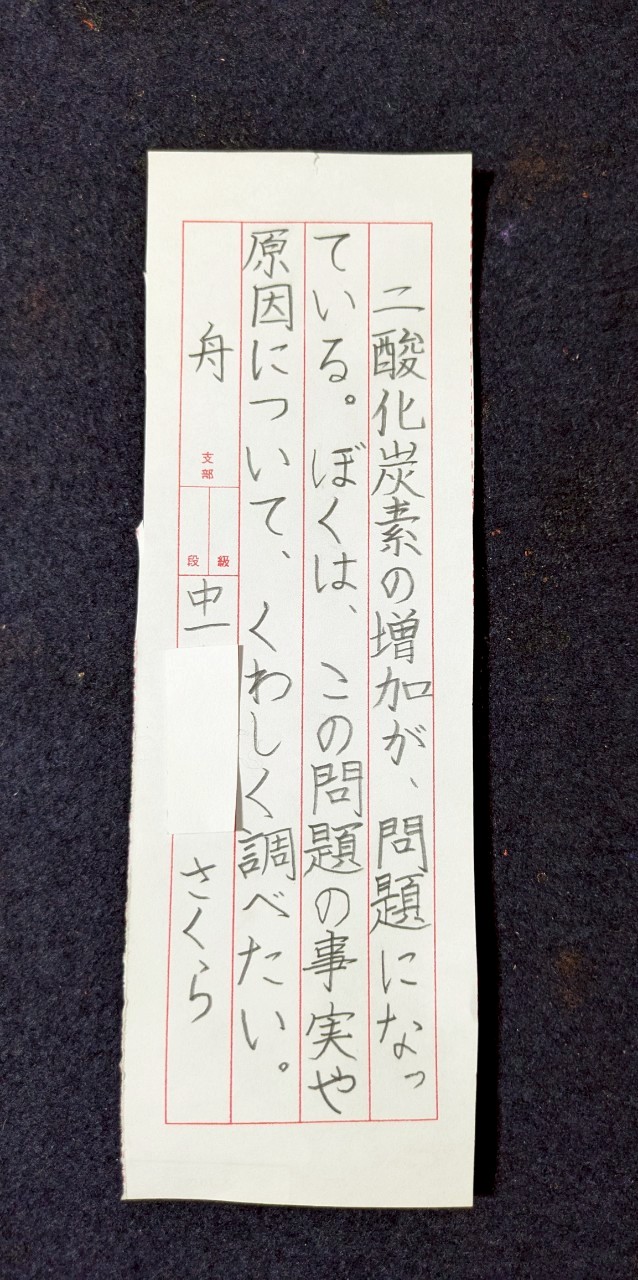 二酸化炭素の増加が、問題になっ
ている。ぼくは、この問題の事実や
原因について、くわしく調べたい。
舟 支部 級 段 中一 さくら